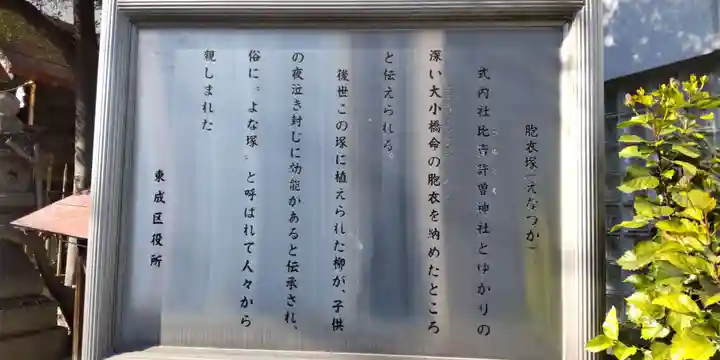 胞衣塚(えなつか)
式内社比売許曽神社とゆかりの
深い大小橋命の胞衣を納めたところ
と伝えられる。
後世この塚に植えられた柳が、子供
の夜泣き封じに効能があると伝承され、
俗に〝よな塚〟と呼ばれて人々から
親しまれた
東成区役所